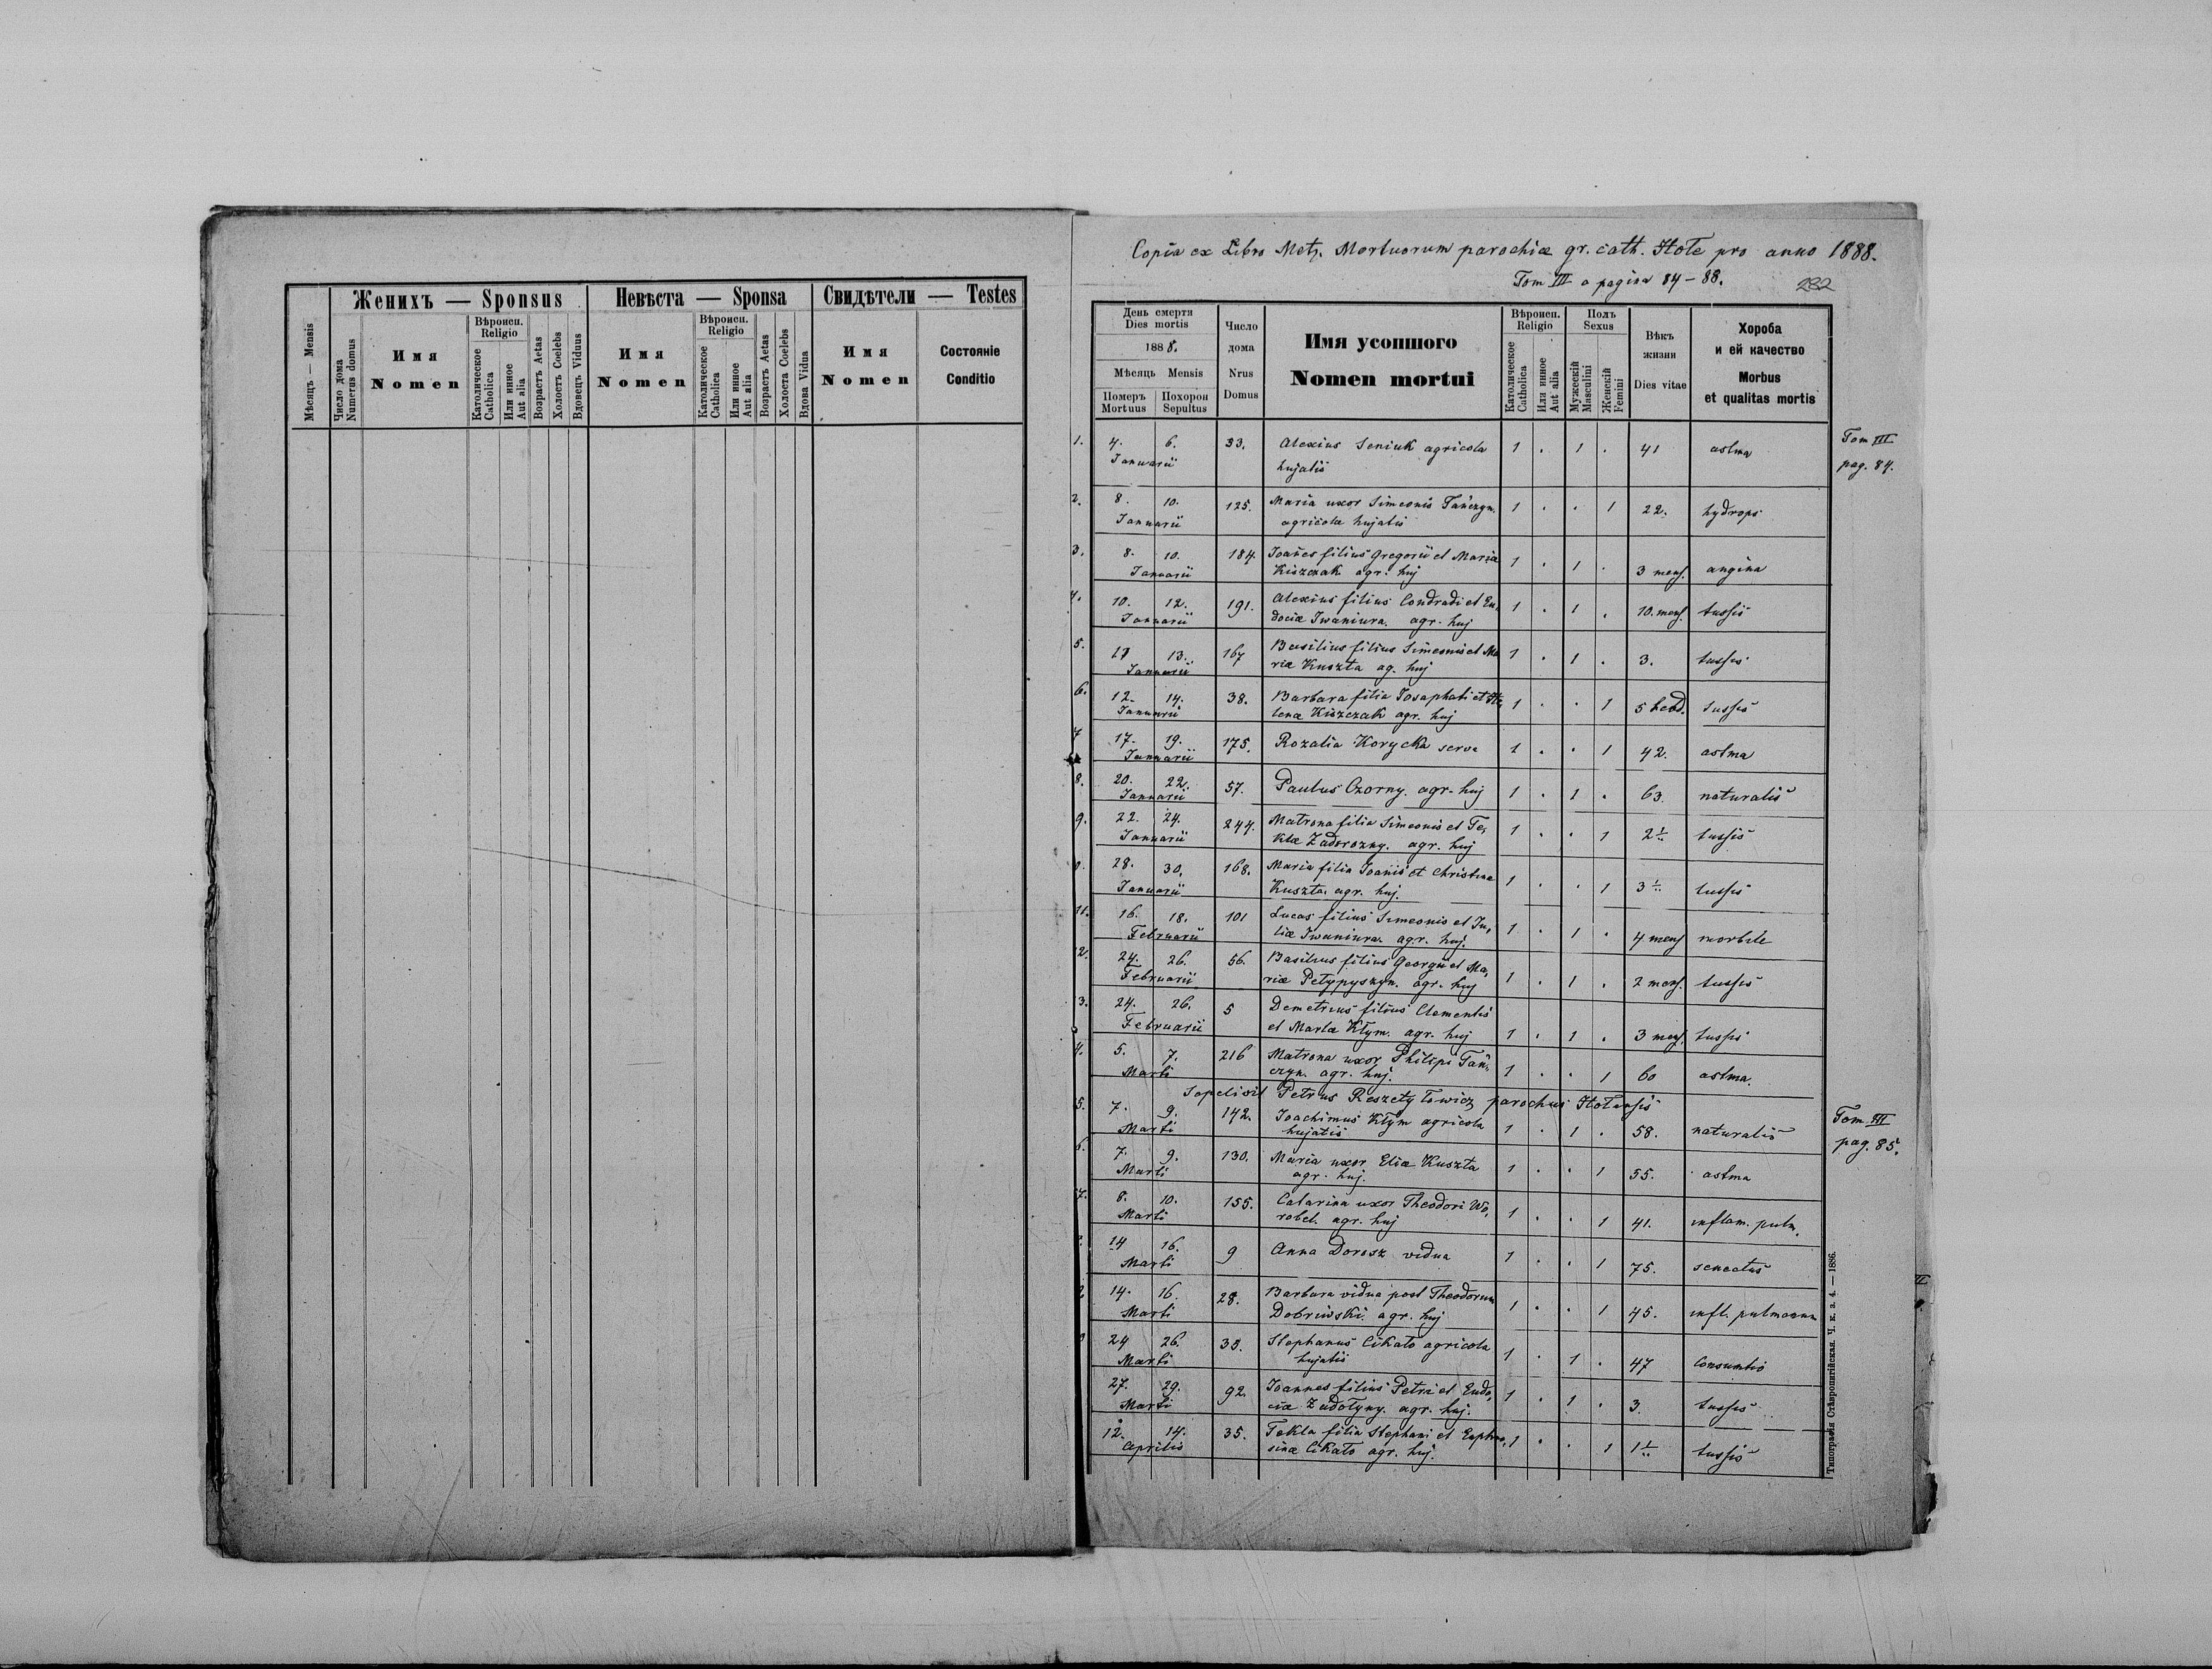 Женихъ — Sponsus
Невѣста — Sponsa
Свидѣтели — Testes
Мѣсяцъ — Mensis
Число дома
Numerus domus
Имя
Nomen
Вѣроисп.
Religio
Католическое
Catholica
Или инное
Aut alia
Возрастъ Aetas
Холостъ Coelebs
Вдовецъ Viduus
Имя
Nomen
Вѣроисп.
Religio
Католическое
Catholica
Или инное
Aut alia
Возрастъ Aetas
Холоста Coelebs
Вдова Vidua
Имя
Nomen
Состояніе
Conditio
Copia ex Libro Metr. Mortuorum parochiæ gr. cath. pro anno 1888.
Tom III a pagina 84-88.
282
День смерти
Dies mortis
1888.
Мѣсяць Mensis
Померъ
Mortuus
Похорон
Sepultus
Число
дома
Nrus
Domus
Имя усопшого
Nomen mortui
Вѣроисп.
Religio
Католическое
Catholica
Или инное
Aut alia
Полъ
Sexus
Мужескій
Masculini
Женскій
Femini
Вѣкъ
жизни
Dies vitae
Хороба
и ей качество
Morbus
et qualitas mortis
1. 4. 6. 33. Alexius Seniuk agricola 1 . 1 . 41 astma
Januarii hujatis
Tom III
pag. 84.
2. 8. 10. 125. Maria uxor Simeonis Tańczyn. 1 . . 1 22. hydrops
Januarii agricolæ hujatis
3. 8. 10. 184. Joañes filius Gregorii et Mariæ 1 . 1 . 3 mens. angina
Januarii Kiszczak agr. huj
4. 10. 12. 191. Alexius filius Condradi et Eu- 1 . 1 . 10. mens. tussis
Januarii dociæ Iwaniura. agr. huj
5. 13. 167 Basilius filius Simeonis et Ma 1 . 1 . 3. tussis
Januarii riæ Kuszta ag. huj
6. 12. 14. 38. Barbara filia Josaphati et He- 1 . . 1 5 hebd. tussis
Januarii lenæ Kiszczak agr. huj
7 17. 19. 175. Rozalia Korycka serva 1 . . 1 42. astma
Januarii
8. 20. 22. 57. Paulus Czorny. agr. huj 1 . 1 . 63. naturalis
Januarii
9. 22. 24. 244. Matrona filia Simeonis et Te- 1 . . 1 2 tussis
Januarii klæ Zadorozny. agr. huj
28. 30. 168. Maria filia Joañis et Christinæ 1 . . 1 3 tussis
Januarii Kuszta. agr. huj.
11. 16. 18. 101 Lucas filius Simeonis et Ju- 1 . 1 . 4 mens morbile
Februarii liæ Iwaniura. agr. huj.
12. 24. 26. 56. Basilius filius Georgii et Ma- 1 . 1 . 2 mens. tussis
Februarii riæ Petypyszyn. agr. huj
3. 24. 26. 5 Demetrius filius Clementis
Februarii et Mariæ Kłym. agr. huj 1 . 1 . 3 mens. tussis
4. 5. 7. 216 Matrona uxor Philipi Tań-
Marti czyn. agr. huj. 1 . . 1 60 astma.
Sepelivit Petrus Reszetyłowicz parochus
5. 7. 9. 142. Joachimus Kłym agricola 1 . 1 . 58. naturalis
Marti hujatis
Tom III
pag. 85.
6. 7. 9. 130. Maria uxor Eliæ Kuszta 1 . . 1 55. astma
Marti agr. huj.
7. 8. 10. 155. Catarina uxor Theodori Wo- 1 . . 1 41. inflam. pulm.
Marti robel. agr. huj
14 16. 9 Anna Dorosz vidua 1 . . 1 75. senectus
Marti
14. 16. 28. Barbara vidua post Theodorum 1 . . 1 45. infl. pulmonum
Marti Dobriwski. agr. huj
24 26. 38. Stephanus Cikało agricola 1 . 1 . 47 Consumtio
Marti hujatis
27. 29. 92. Joannes filius Petri et Eudo- 1 . 1 . 3. tussis
Marti ciæ Zadołyny. agr. huj.
12. 14. 35. Tekla filia Stephani et Euphro- 1 . . 1 1 tussis
Aprilis sinæ Cikało agr. huj.
Типографія Ставропигійская. Ч. к. а. 4. — 1886.